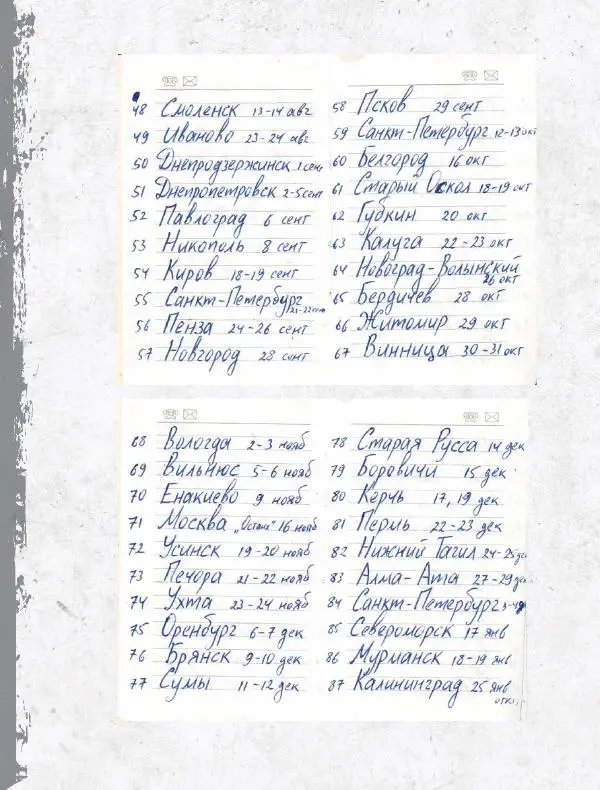 48 Смоленск 13-14 авг
49 Иваново 23-24 авг
50 Днепродзержинск 1 сент
51 Днепропетровск 2-5 сент
52 Павлоград 6 сент
53 Никополь 8 сент
54 Киров 18-19 сент
55 Санкт-Петербург
21-22 сент
56 Пенза 24-26 сент
57 Новгород 28 сент
58 Псков 29 сент
59 Санкт-Петербург 12-13 окт
60 Белгород 16 окт
61 Старый Оскол 18-19 окт
62 Губкин 20 окт
63 Калуга 22-23 окт
64 Новоград-Волынский
26 окт
65 Бердичев 28 окт
66 Житомир 29 окт
67 Винница 30-31 окт
68 Вологда 2-3 нояб
69 Вильнюс 5-6 нояб
70 Енакиево 9 нояб
71 Москва „Остан" 16 нояб
72 Усинск 19-20 нояб
73 Печора 21-22 нояб
74 Ухта 23-24 нояб
75 Оренбург 6-7 дек
76 Брянск 9-10 дек
77 Сумы 11-12 дек
78 Старая Русса 14 дек
79 Боровичи 15 дек
80 Керчь 17, 19 дек
81 Пермь 22-23 дек
82 Нижний Тагил 24-25 де
83 Алма-Ата 27-29 де
84 Санкт-Петербург
85 Североморск 17 янв
86 Мурманск 18-19 янв
87 Калининград 25 янв